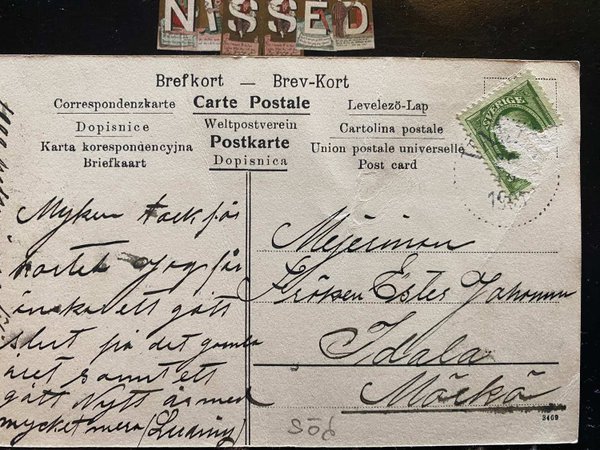 NISSED
Brefkort — Brev-Kort
Correspondenzkarte Carte Postale Levelező-Lap
Dopisnice Weltpostverein Cartolina postale
Karta korespondencyjna Postkarte Union postale universelle
Briefkaart Dopisnica Post card
SVERIGE
Myken tack för
kortet Jag får
önska ett gått
slut på det gamla
året samt ett
gått Nytt år med
mycket mera
Mejeriman
Fröken Ester
Idala
Möckö
3469